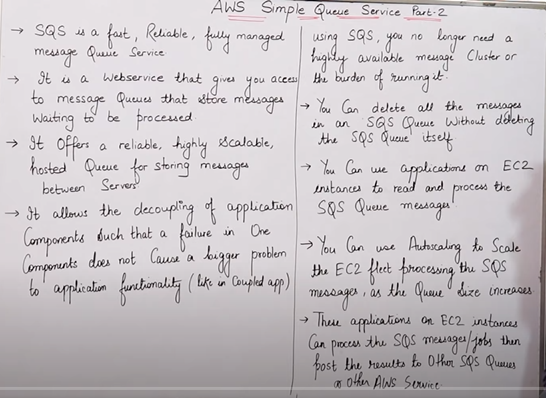 AWS Simple Queue Service Part-2
→ SQS is a fast, Reliable, fully managed
message Queue Service
→ It is a Webservice that gives you access
to message Queues that store messages
Waiting to be processed
→ It Offers a reliable, highly Scalable,
hosted Queue for storing messages
between Servers
→ It allows the decoupling of application
Components Such that a failure in One
Components does not Cause a bigger problem
to application functionality (like in Coupled app)
using SQS, you no longer need a
highly available message Cluster or
the burden of running it.
→ You Can delete all the messages
in an SQS Queue Without deleting
the SQS Queue itself
→ You Can use applications on EC2
instances to read and process the
SQS Queue messages
→ You Can use Autoscaling to Scale
the EC2 fleet processing the SQS
messages, as the Queue Size increases
→ These applications on EC2 instances
Can process the SQS messages/jobs then
post the results to Other SQS Queues
or Other AWS Service